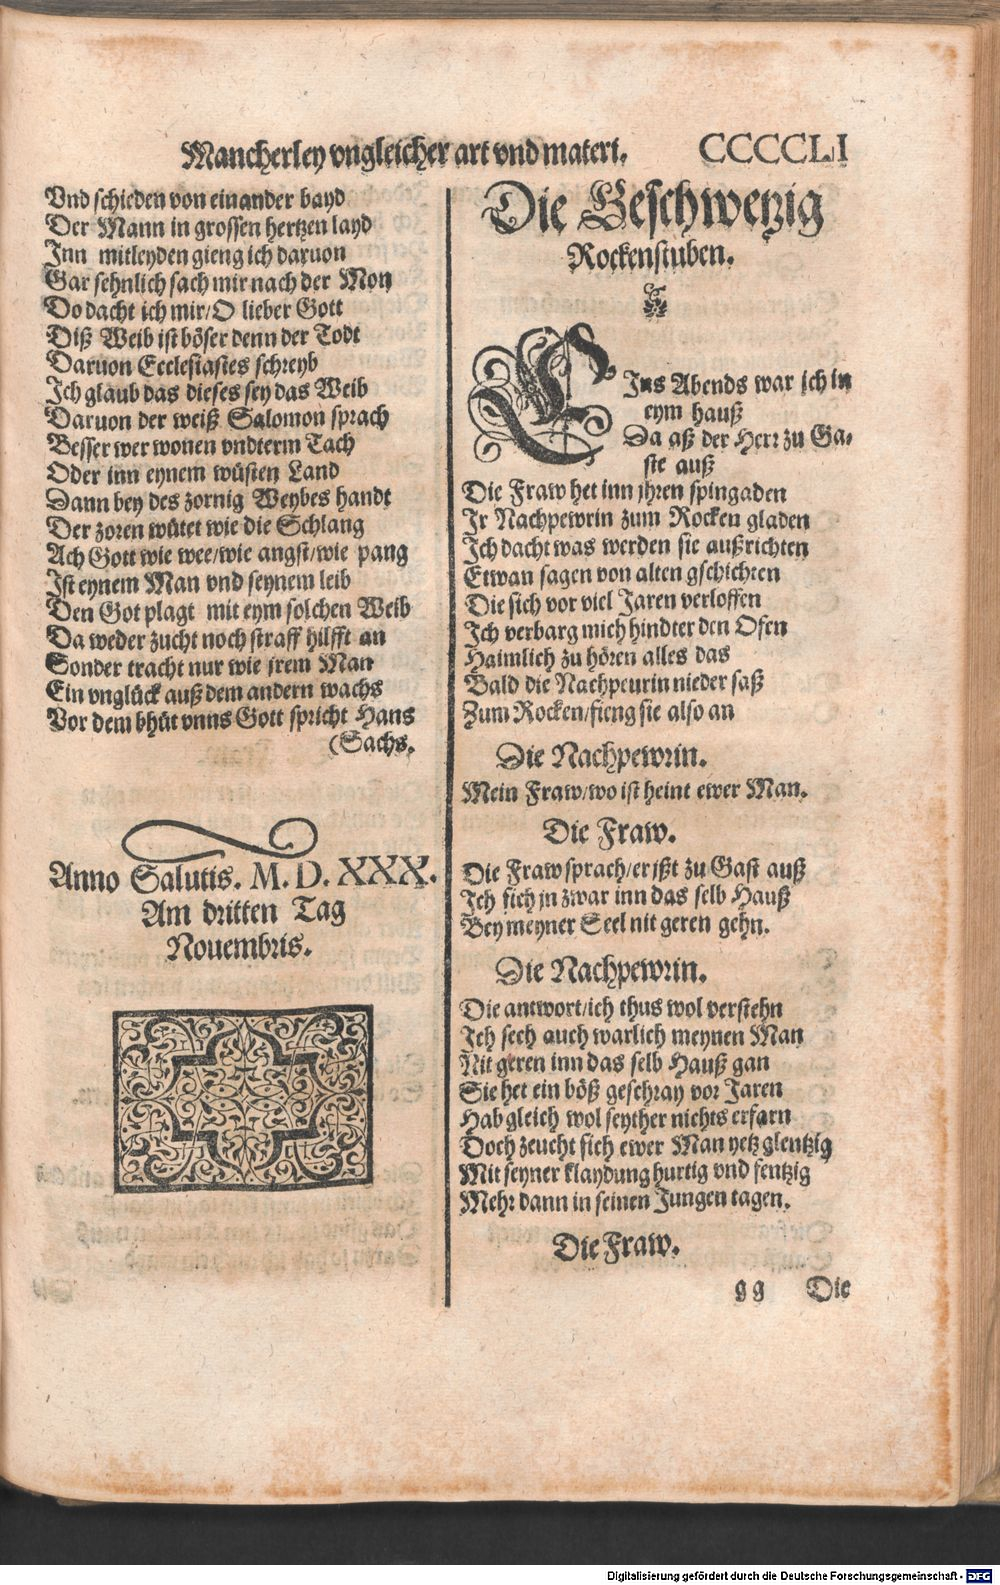 Mancherley vngleicher art vnd materi. CCCCLI
Vnd schieden von einander bayd
Der Mann in grossen hertzen layd
Inn mitleyden gieng ich daruon
Gar sehnlich sach mir nach der Mon
Do dacht ich mir/O lieber Gott
Diß Weib ist böser denn der Todt
Daruon Ecclesiastes schreyb
Ich glaub das dieses sey das Weib
Daruon der weiß Salomon sprach
Besser wer wonen vndterm Tach
Oder inn eynem wüsten Land
Dann bey des zornig Weybes handt
Der zoren wütet wie die Schlang
Ach Gott wie wee/wie angst/wie pang
Ist eynem Man vnd seynem leib
Den Got plagt mit eym solchen Weib
Da weder zucht noch straff hilfft an
Sonder tracht nur wie jrem Man
Ein vnglück auß dem andern wachs
Vor dem bhüt vnns Gott spricht Hans
(Sachs.
Anno Salutis. M. D. XXX.
Am dritten Tag
Nouembris.
Die Geschwetzig
Rockenstuben.
EJns Abends war ich in
eym hauß
Da aß der Herr zu Ga-
ste auß
Die Fraw het inn jhren spingaden
Ir Nachpewrin zum Rocken gladen
Ich dacht was werden sie außrichten
Etwan sagen von alten gschichten
Die sich vor viel Jaren verloffen
Ich verbarg mich hindter den Ofen
Haimlich zu hören alles das
Bald die Nachpeurin nieder saß
Zum Rocken/fieng sie also an
Die Nachpewrin.
Mein Fraw/wo ist heint ewer Man.
Die Fraw.
Die Fraw sprach/er ißt zu Gast auß
Ich sich jn zwar inn das selb Hauß
Bey meyner Seel nit geren gehn.
Die Nachpewrin.
Die antwort/ich thus wol verstehn
Ich sech auch warlich meynen Man
Nit geren inn das selb Hauß gan
Sie het ein böß geschray vor Jaren
Hab gleich wol seyther nichts erfarn
Doch zeucht sich ewer Man yetz glentzig
Mit seyner klaydung hurtig vnd fentzig
Mehr dann in seinen Jungen tagen.
Die Fraw.
gg Die
Digitalisierung gefördert durch die Deutsche Forschungsgemeinschaft - DFG